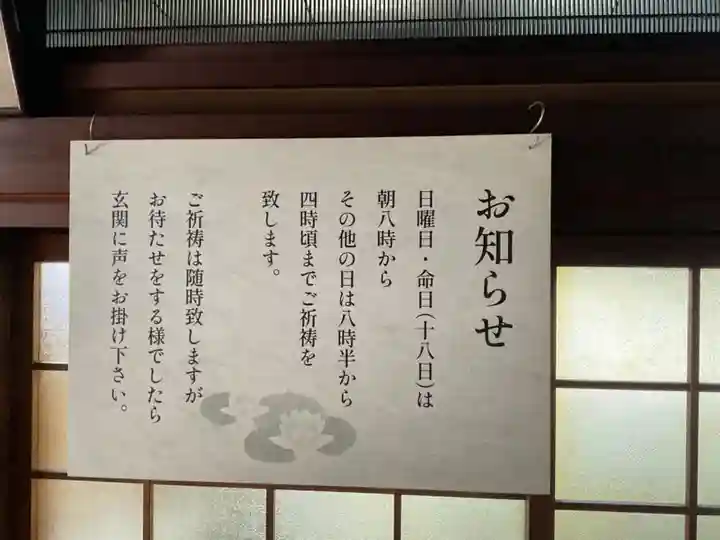 お知らせ
日曜日・命日(十八日)は
朝八時から
その他の日は八時半から
四時頃までご祈祷を
致します。
ご祈祷は随時致しますが
お待たせをする様でしたら
玄関に声をお掛け下さい。